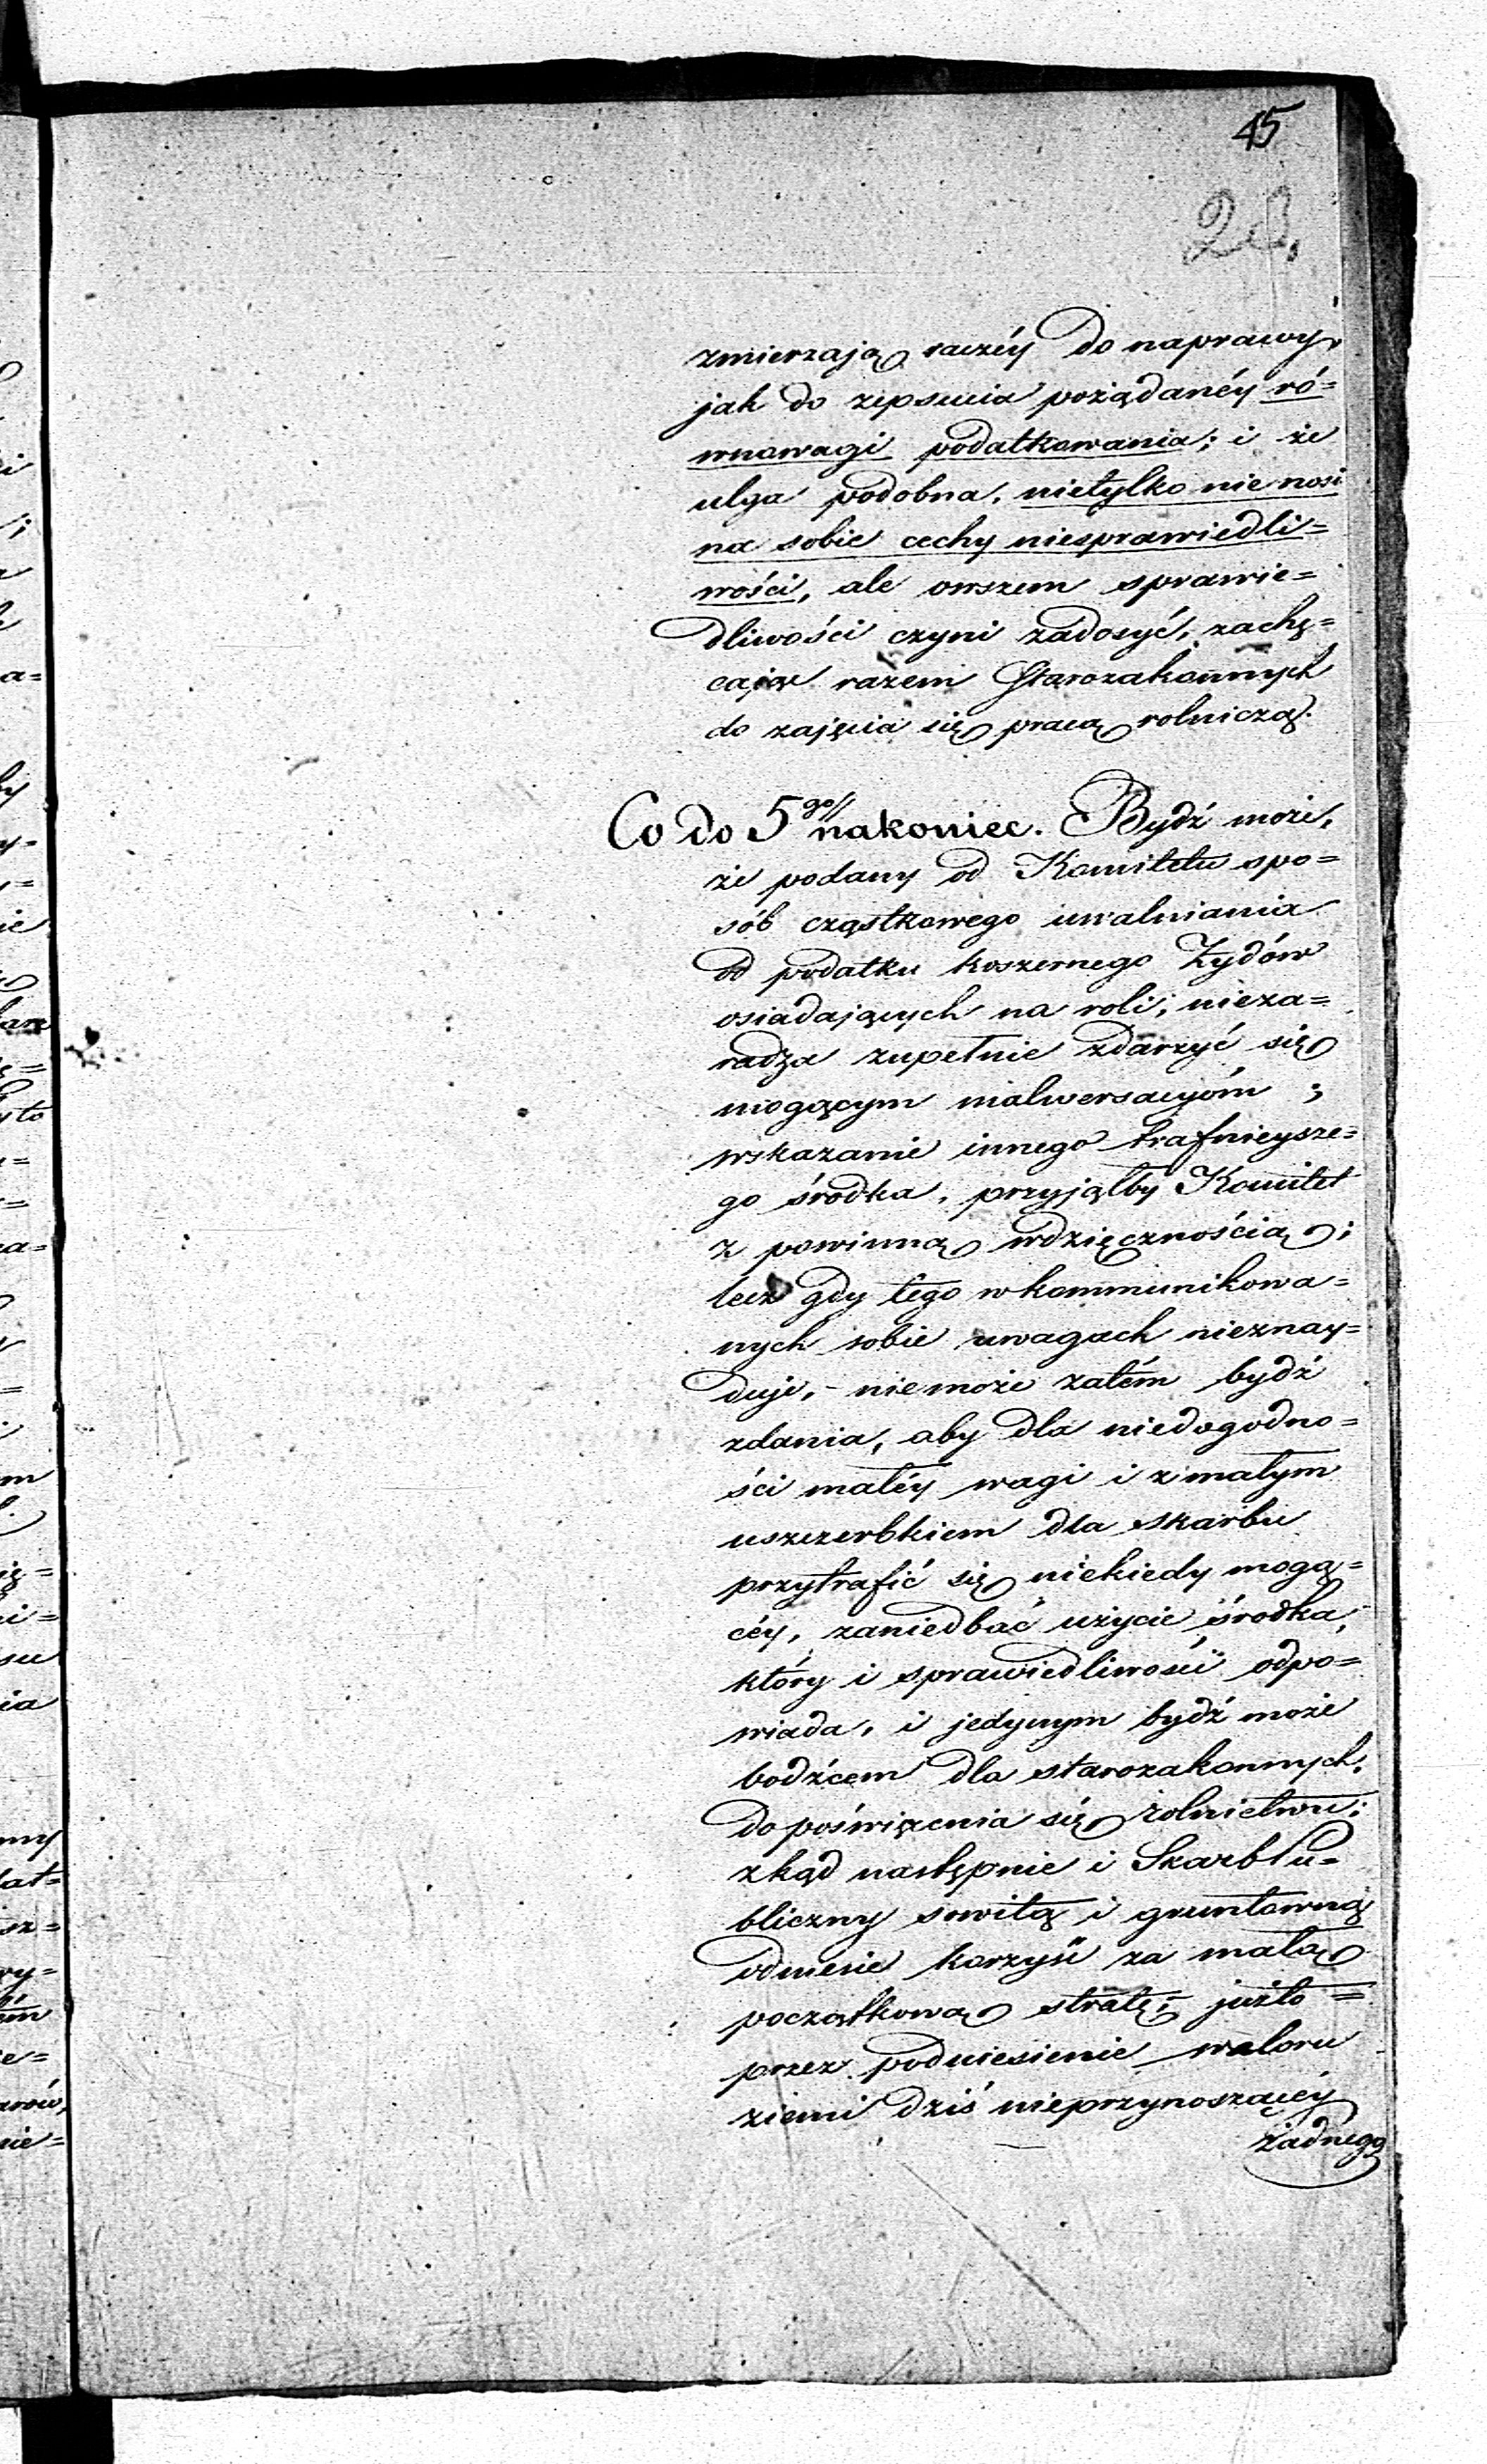 45
zmierzają raczéy do naprawy,
jak do zepsucia pożądanéy ró=
wnowagi podatkowania; i że
ulga podobna, nietylko nie nosi
na sobie cechy niesprawiedli=
wości, ale owszem sprawie=
dliwości czyni zadosyć, zachę=
cając razem Starozakonnych
do zajęcia się pracą rolniczą.
Co do 5go nakoniec. Bydź może,
że podany od Komitetu spo=
sób cząstkowego uwalniania
od podatku koszernego Żydów
osiadających na roli; nieza=
radza zupełnie zdarzyć się
mogącym malwersacyóm ;
wskazanie innego trafnieysze=
go środka, przyjąłby Komitet
z powinną wdzięcznością;
lecz gdy tego w kommunikowa=
nych sobie uwagach nieznay=
duje, - niemoże zatém bydź
zdania, aby dla niedogodno=
ści małéy wagi i z małym
uszczerbkiem dla skarbu
przytrafić się niekiedy mogą=
céy, zaniedbać użycie środka,
który i sprawiedliwości odpo=
wiada, i jedynym bydź może
bodźcem dla starozakonnych,
do poświęcenia się rolnictwu;
zkąd następnie i Skarb Pu=
bliczny sowitą i gruntowną
odniesie korzyść za małą
początkową stratę; już to =
przez podniesienie waloru
ziemi dziś nieprzynoszącéy
żadnego